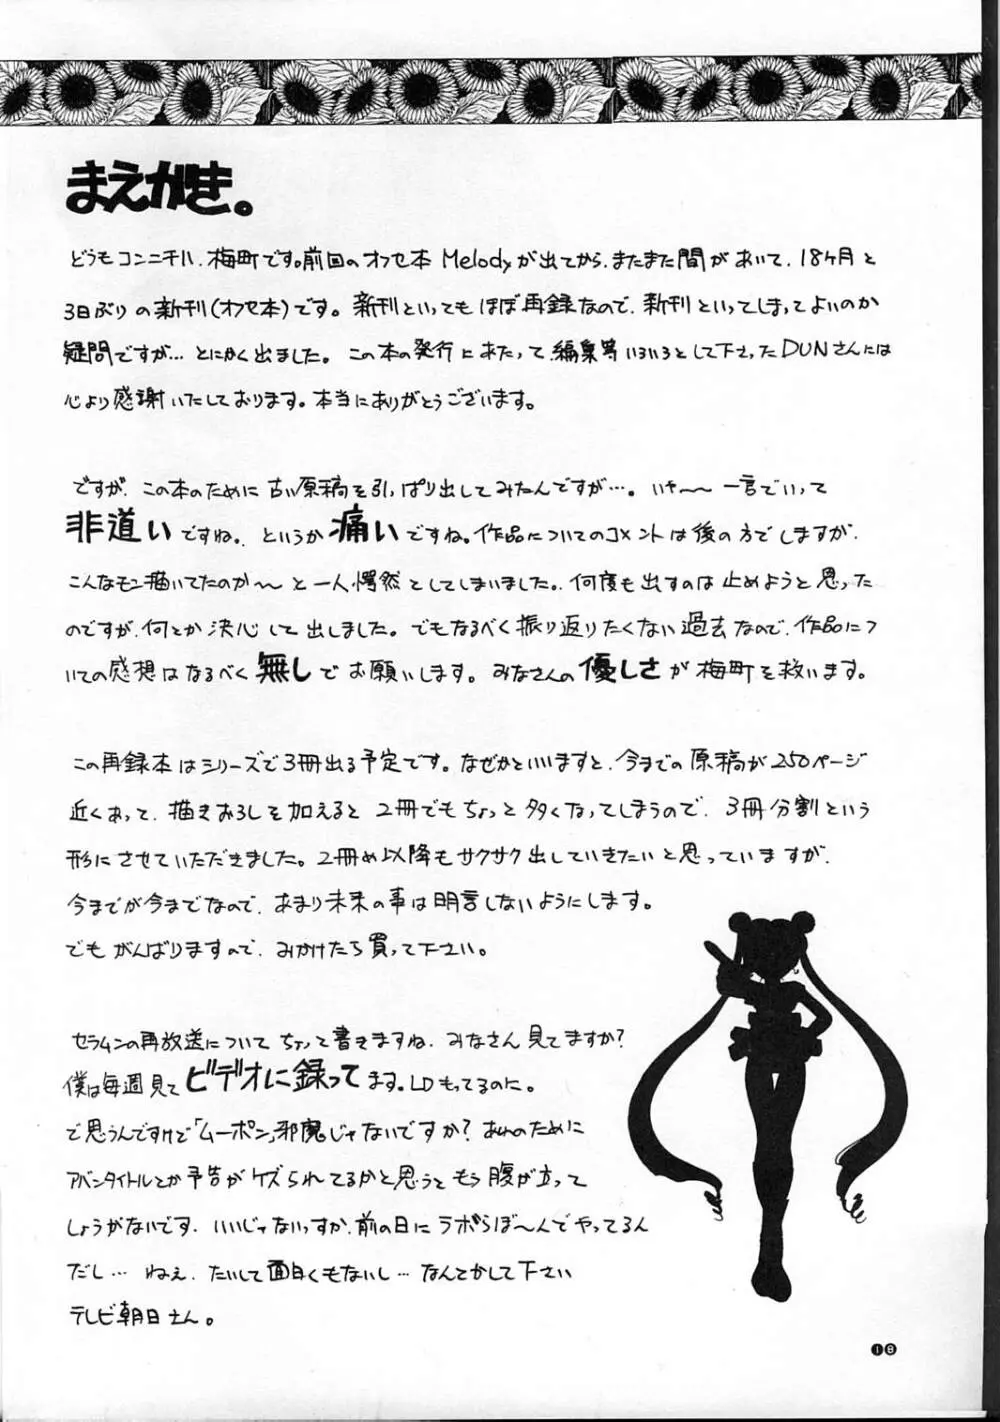 まえがき。
どうもコンニチハ、梅町です。前回のオフセ本Melodyが出てから、またまた間があいて、18ヶ月と
3日ぶりの新刊(オフセ本)です。新刊といってもほぼ再録なので、新刊といってしまってよいのか
疑問ですが…とにかく出ました。この本の発行にあたって、編集等いろいろとして下さったDUNさんには
心より感謝いたしております。本当にありがとうございます。
ですが、この本のために古い原稿を引っぱり出してみたんですが…。いや〜〜一言でいって
非道いですね。というか痛いですね。作品についてのコメントは後の方でしますが、
こんなモン描いてたのか〜〜と一人愕然としてしまいました。何度も出すのは止めようと思った
のですが、何とか決心して出しました。でもなるべく振り返りたくない過去なので、作品につ
いての感想はなるべく無しでお願いします。みなさんの優しさが梅町を救います。
この再録本はシリーズで3冊出る予定です。なぜかといいますと、今までの原稿が250ページ
近くあって、描きおろしを加えると2冊でもちょっと多くなってしまうので、3冊分割という
形にさせていただきました。2冊め以降もサクサク出していきたいと思っていますが、
今までが今までなので、あまり未来の事は明言しないようにします。
でもがんばりますので、みかけたら買って下さい。
セラムンの再放送についてちょっと書きますね。みなさん見てますか?
僕は毎週見てビデオに録ってます。LDもってるのに。
で思うんですけど「ムーポン」邪魔じゃないですか?あれのために
アバンタイトルとか予告がケズられてるかと思うともう腹が立って
しょうがないです。いいじゃないっすか、前の日にラボらぼ〜んでやってるん
だし…ねぇ、たいして面白くもないし…なんとかして下さい
テレビ朝日さん。
18